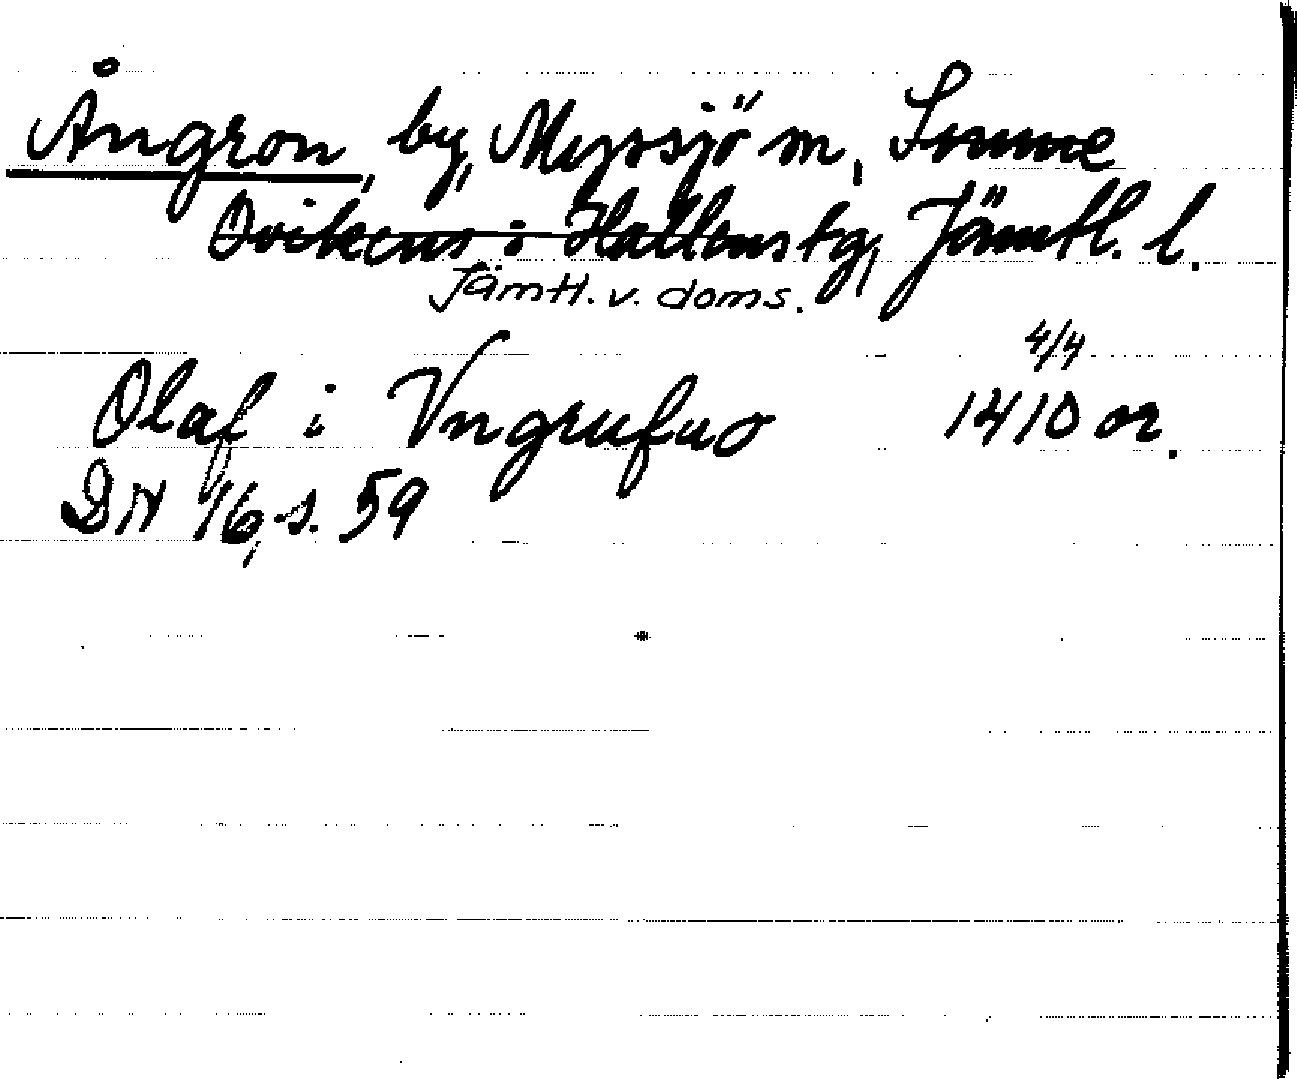 Ångron, by, Myssjö sn, Sunne
Ovikens o Hallens tg, Jämtl. l.
Jämtl. v. doms.
4/4
Olaf i Vngrufuo 1410 or.
DN 16, s. 59